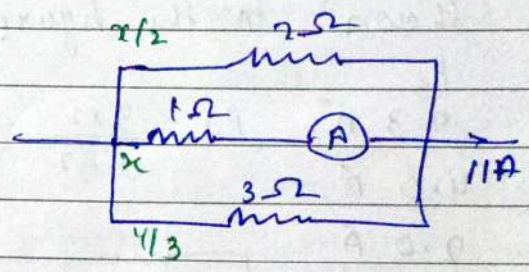 x/2 2Ω
1Ω A
x 11A
3Ω
4/3